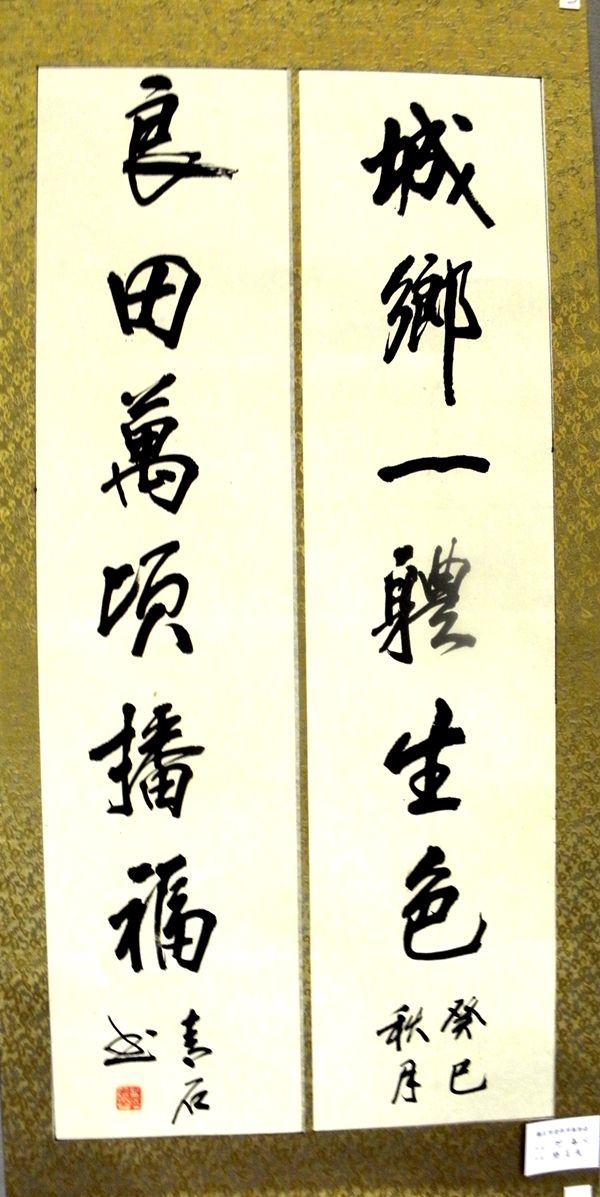 城鄉一體生色
癸巳
秋月
良田萬頃播福
青石
书